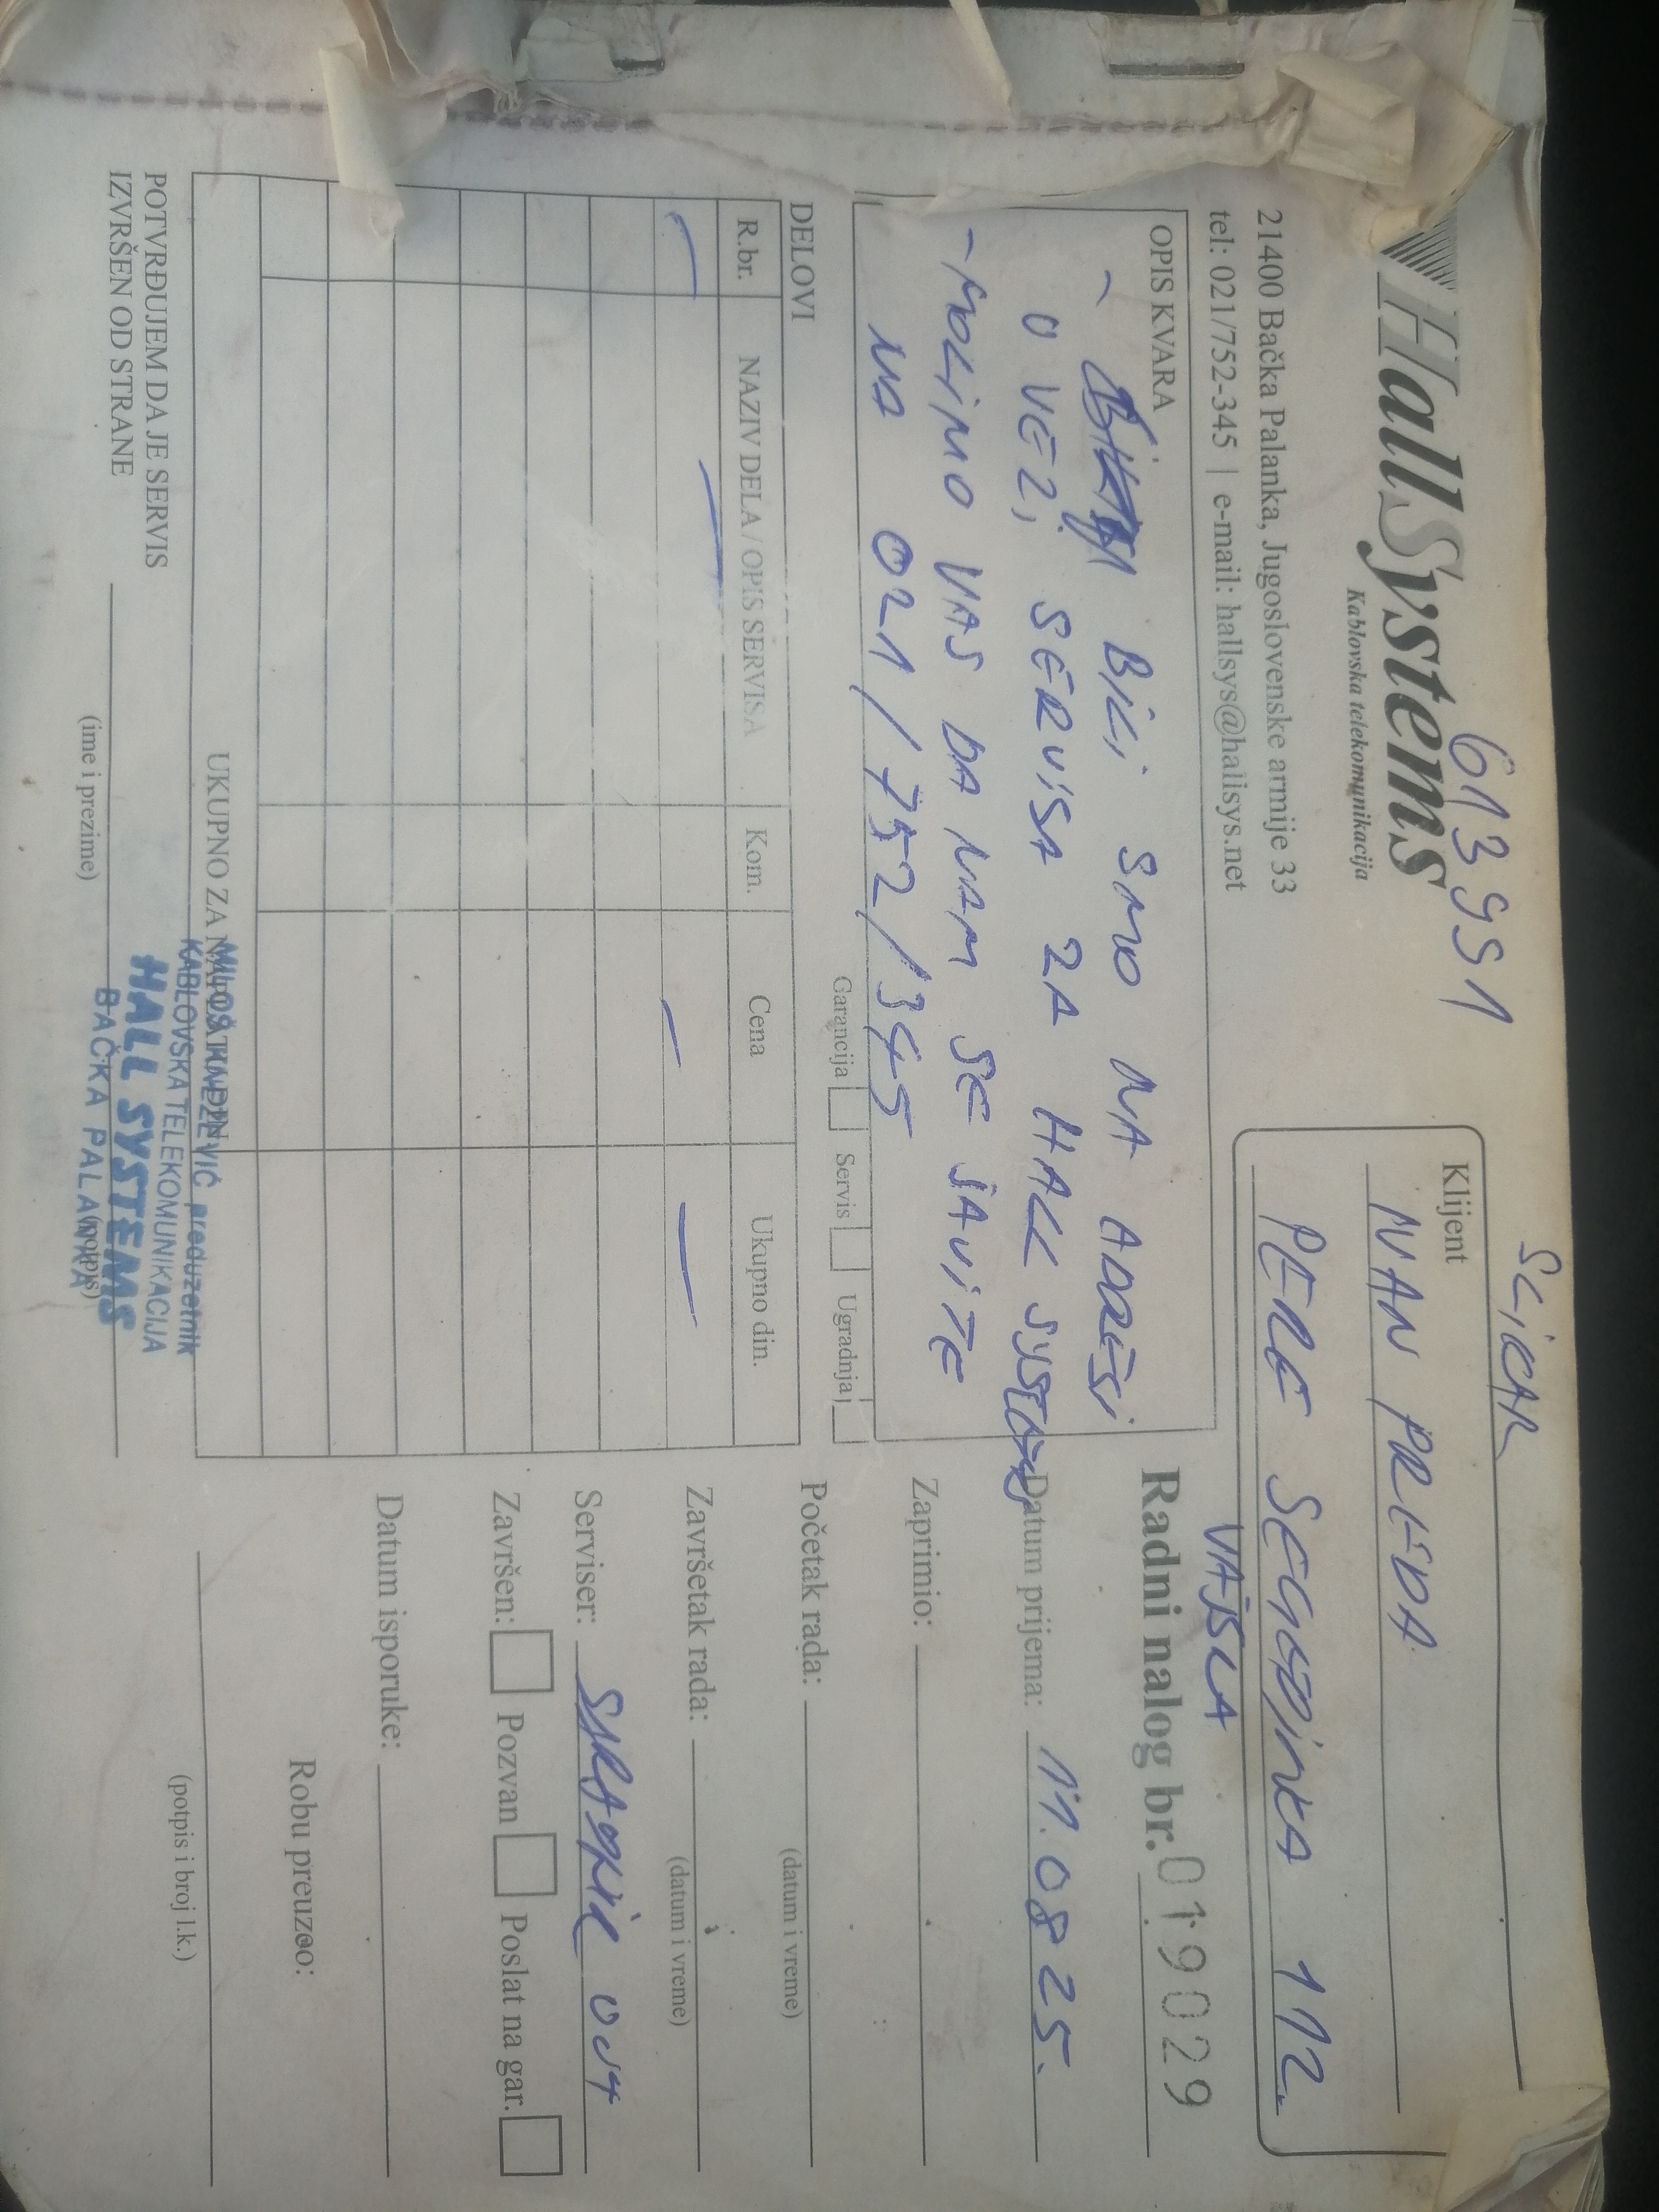 613991
HallSystems
Kablovska telekomunikacija
21400 Bačka Palanka, Jugoslovenske armije 33
tel: 021/752-345 | e-mail: hallsys@hallsys.net
Klijent
NAN PRLJDA
PERE SEGEDINKA 112.
VAJSKA
OPIS KVARA
- BILI SMO NA ADRESI
U VEZI SERVISA ZA HALL SYSTEMS
- MOLIMO VAS DA NAM SE JAVITE
NA 021/752/345
Garancija Servis Ugradnja
Radni nalog br. 019029
Datum prijema: 11.08 25.
Zaprimio:
Početak rada:
(datum i vreme)
Završetak rada:
(datum i vreme)
Serviser:
Završen: Pozvan Poslat na gar.
Datum isporuke:
Robu preuzeo:
(potpis i broj l.k.)
DELOVI
R.br. NAZIV DELA / OPIS SERVISA Kom. Cena Ukupno din.
UKUPNO ZA
MILOŠ KNEŽEVIĆ preduzetnik
KABLOVSKA TELEKOMUNIKACIJA
HALL SYSTEMS
BAČKA PALANKA
POTVRĐUJEM DA JE SERVIS
IZVRŠEN OD STRANE
(ime i prezime) (potpis)